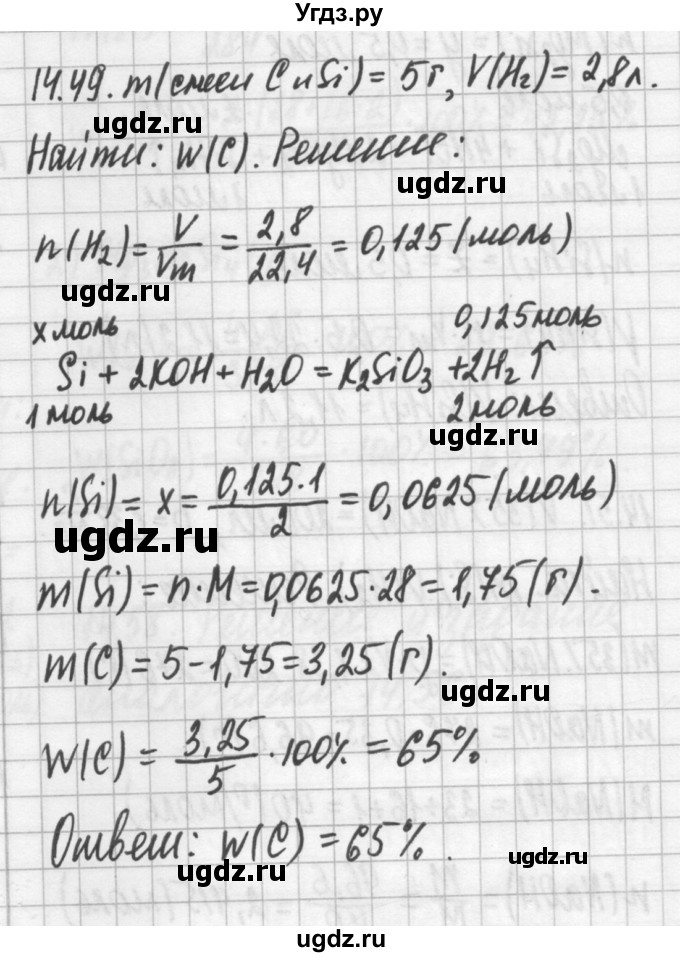 Угдз.ру
14.49. m(смеси C и Si) = 5г, V(H₂) = 2,8л.
ugdz.ru
Найти: w(C). Решение:
ugdz.ru
n(H₂) = V/Vm = 2,8/22,4 = 0,125 (моль)
ugdz.ru
x моль 0,125 моль
Si + 2KOH + H₂O = K₂SiO₃ + 2H₂↑
1 моль 2 моль
ugdz.ru
n(Si) = x = 0,125·1/2 = 0,0625 (моль)
ugdz.ru
m(Si) = n·M = 0,0625·28 = 1,75 (г).
ugdz.ru
m(C) = 5 - 1,75 = 3,25 (г).
ugdz.ru
W(C) = 3,25/5 · 100% = 65%
ugdz.ru
Ответ: w(C) = 65%.
ugdz.ru
ugdz.ru
ugdz.ru